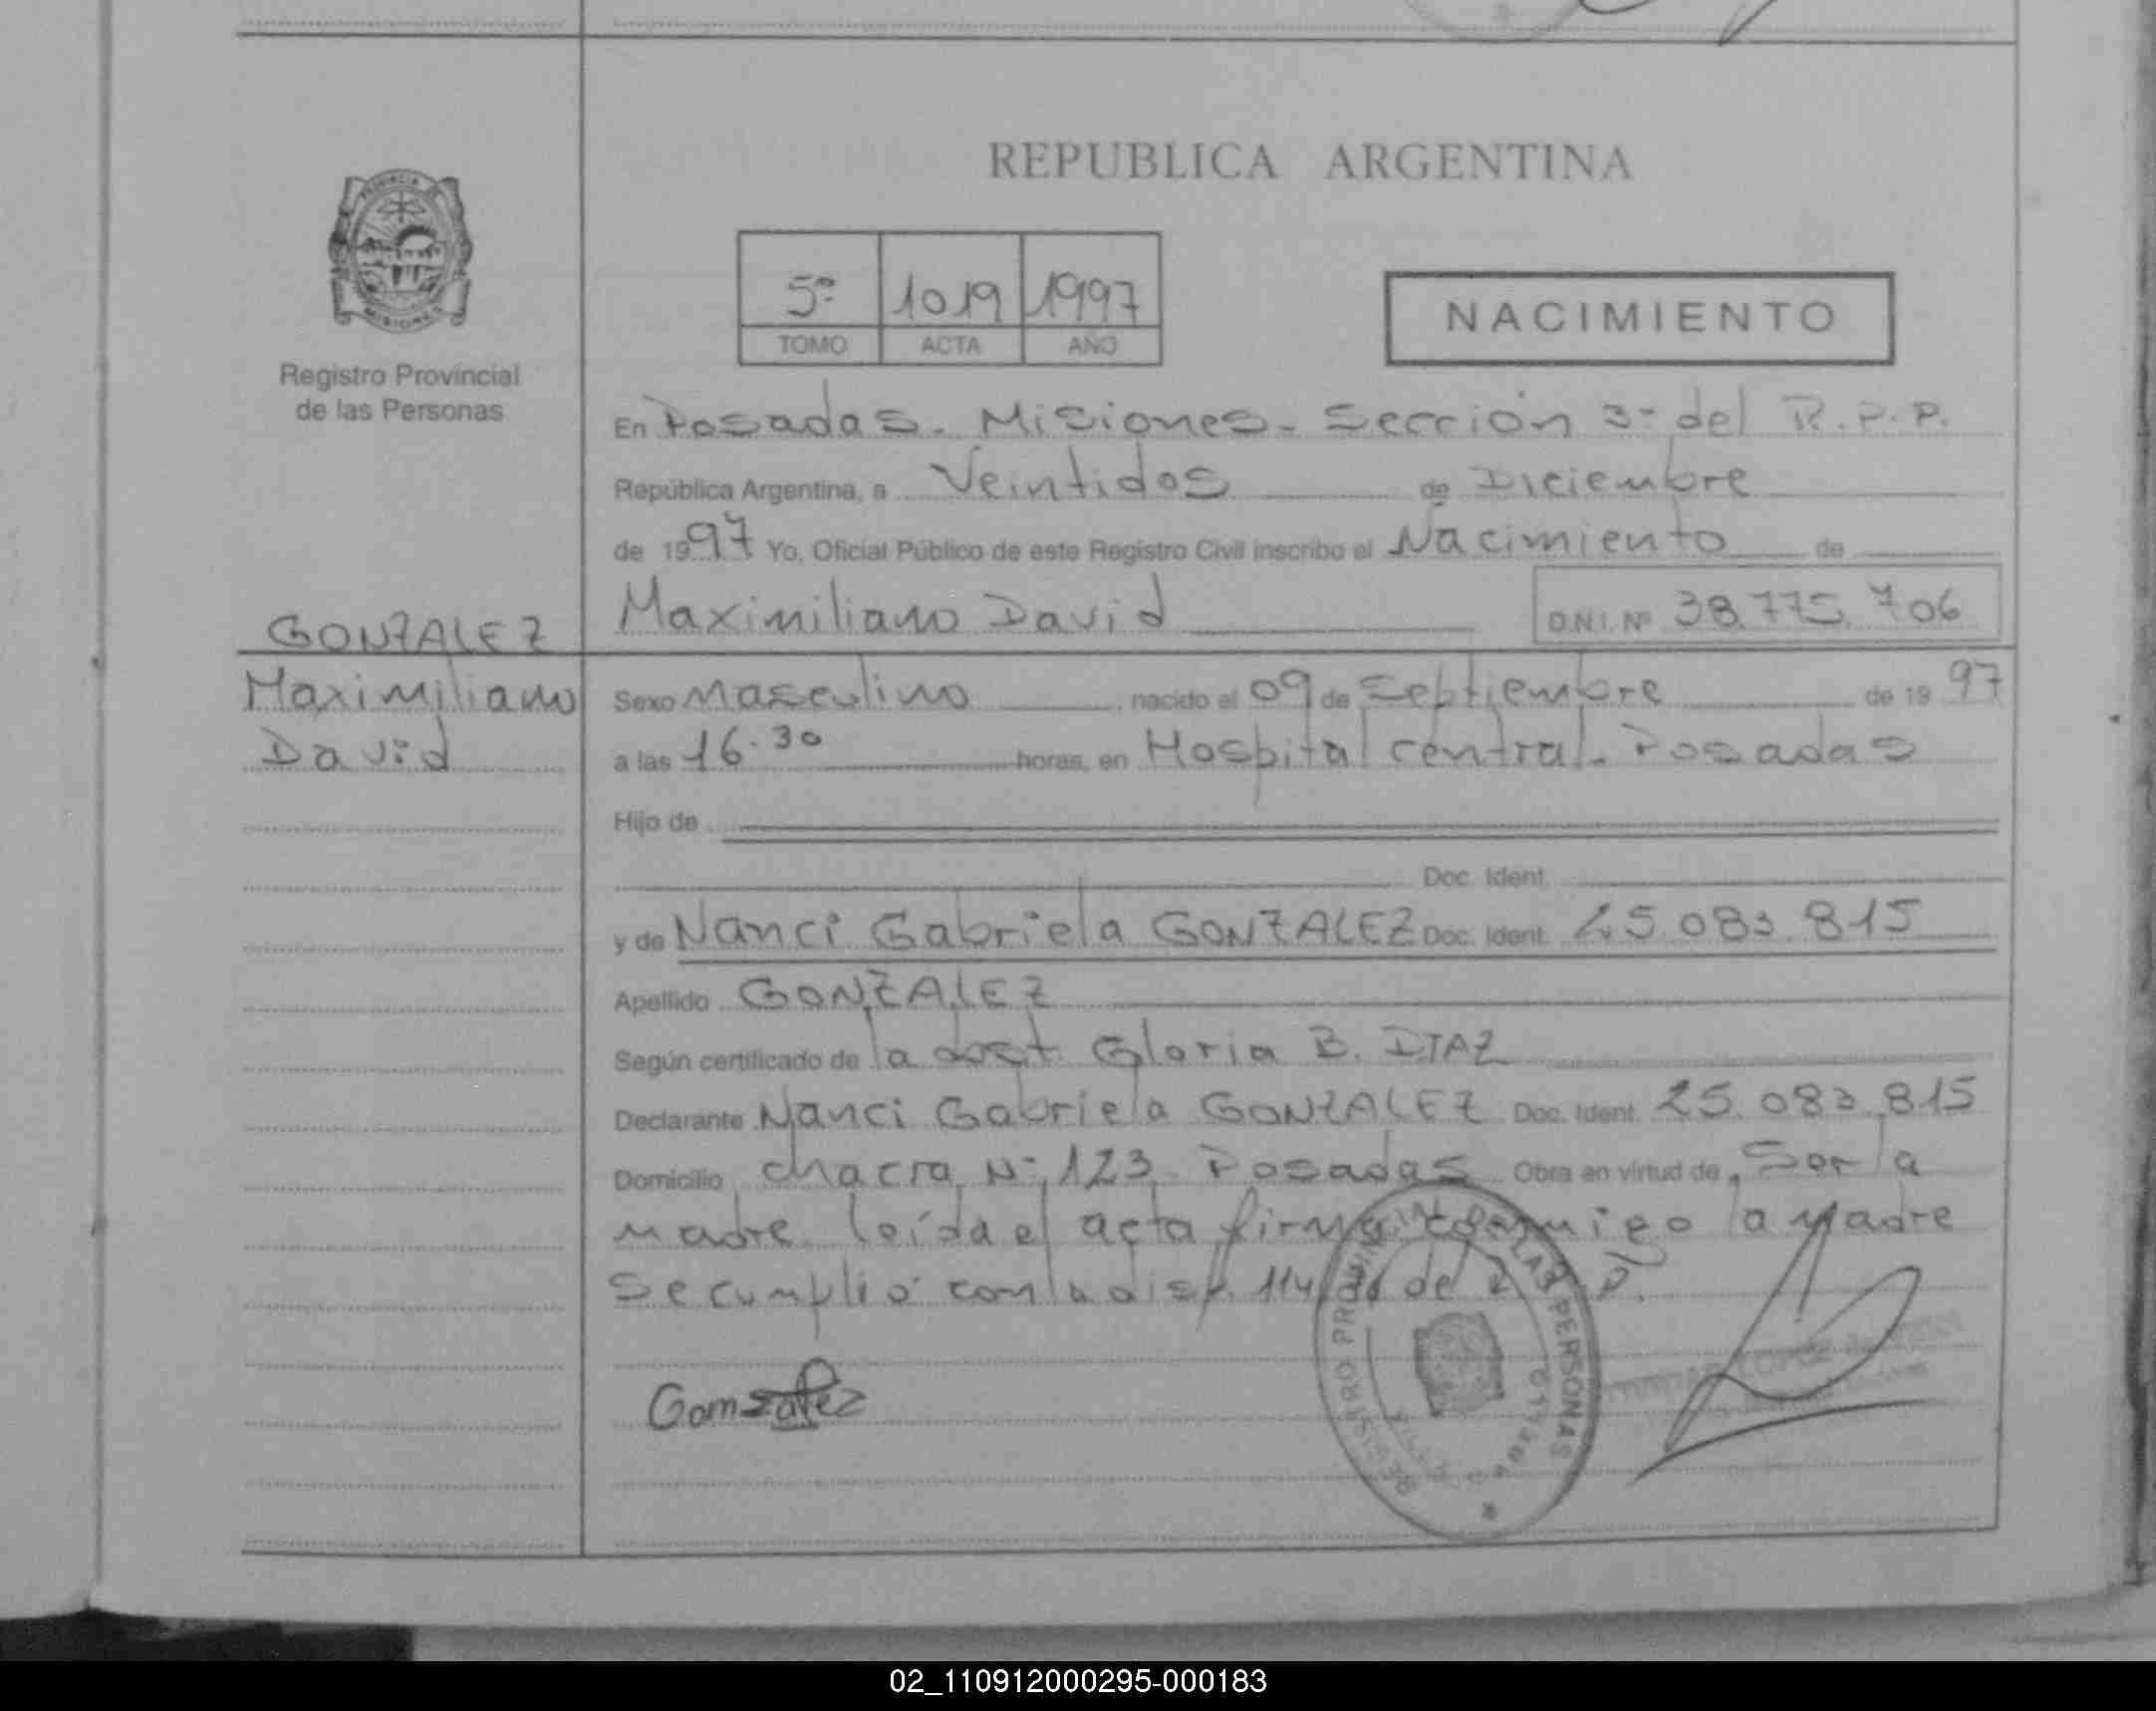 REPUBLICA ARGENTINA
PROVINCIA DE
MISIONES
Registro Provincial
de las Personas
5º 1019 1997
TOMO ACTA AÑO
NACIMIENTO
En Posadas. Misiones. Sección 3ª del R.P.P.
República Argentina, a Veintidos de Diciembre
de 1997 Yo, Oficial Público de este Registro Civil inscribo el Nacimiento de
Maximiliano David D.N.I. Nº 38.775.706
GONZALEZ
Maximiliano
David
Sexo Masculino nacido el 09 de Septiembre de 1997
a las 16.30 horas, en Hospital central. Posadas
Hijo de
Doc. Ident.
y de Nanci Gabriela GONZALEZ Doc. Ident. 25.083.815
Apellido GONZALEZ
Según certificado de la obst. Gloria B. DIAZ
Declarante Nanci Gabriela GONZALEZ Doc. Ident. 25.083.815
Domicilio chacra Nº 123 Posadas Obra en virtud de Ser la
madre leída el acta firma conmigo la madre
Se cumplió con la disp. 114
Gonzalez
REGISTRO PROVINCIAL DE LAS PERSONAS
02_110912000295-000183